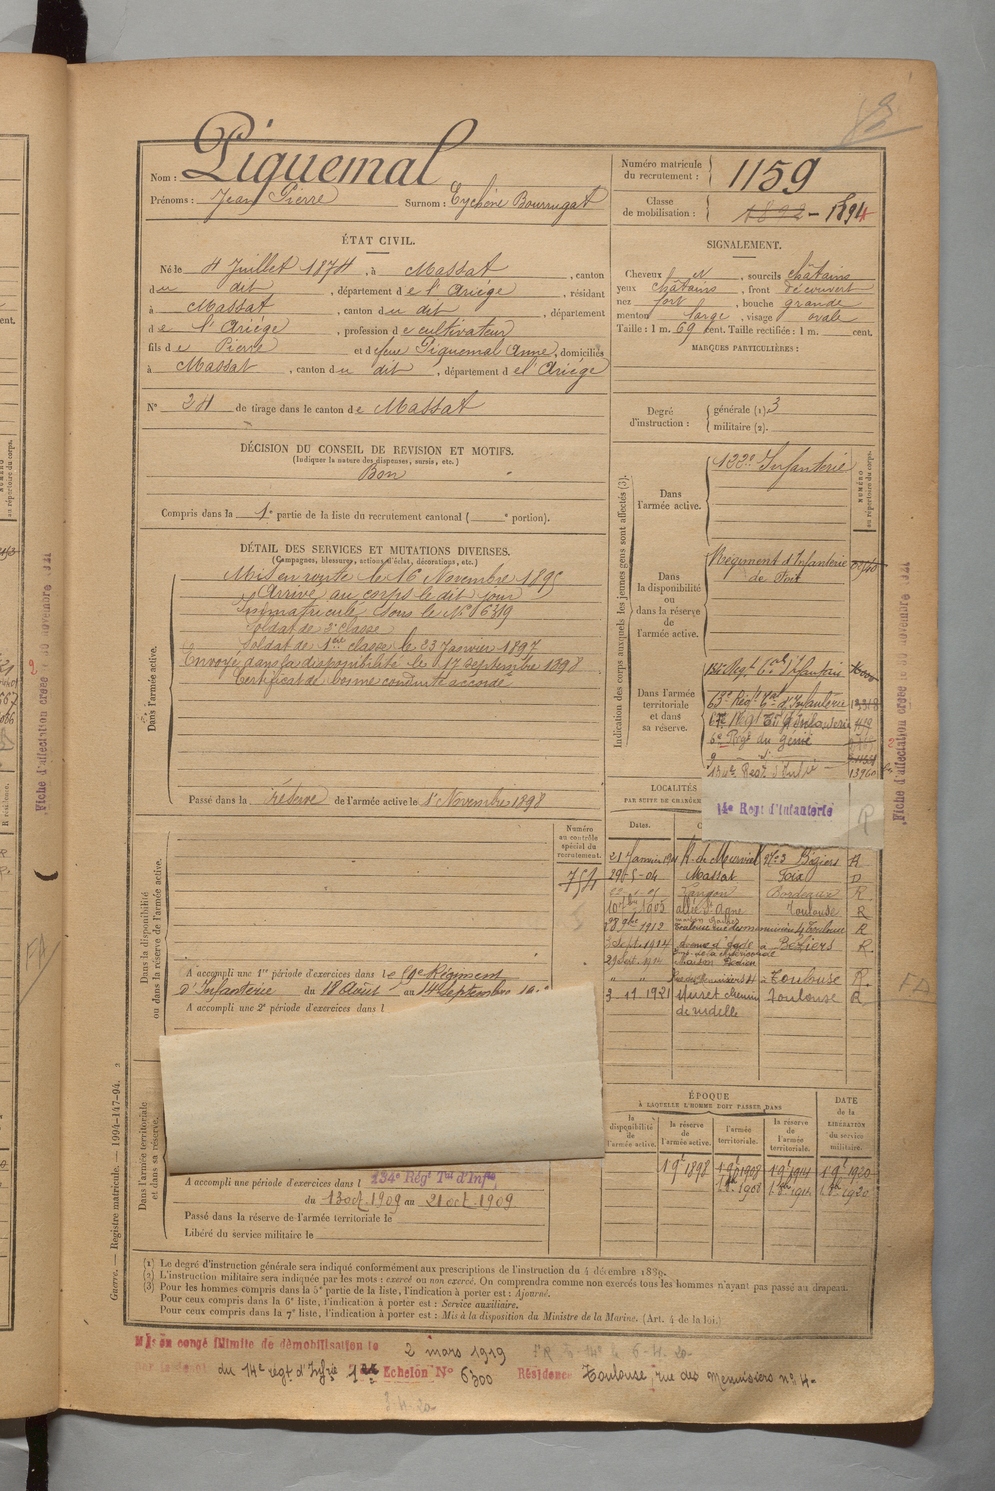 Nom : Piquemal
Prénoms : Jean Pierre Surnom : Eychène Bourrugat
Numéro matricule du recrutement : 1159
Classe de mobilisation : 1892 - 1894
ÉTAT CIVIL.
Né le 4 Juillet 1874, à Massat, canton
du dit, département de l'Ariége, résidant
à Massat, canton du dit, département
de l'Ariége, profession de cultivateur
fils de Pierre et de feue Piquemal Anne, domiciliés
à Massat, canton du dit, département de l'Ariége
N° 24 de tirage dans le canton de Massat
SIGNALEMENT.
Cheveux et, sourcils châtains
yeux châtains, front découvert
nez fort, bouche grande
menton large, visage ovale
Taille : 1 m. 69 cent. Taille rectifiée : 1 m. cent.
MARQUES PARTICULIÈRES :
Degré d'instruction : générale (1) 3
militaire (2).
DÉCISION DU CONSEIL DE REVISION ET MOTIFS.
(Indiquer la nature des dispenses, sursis, etc.)
Bon
Compris dans la 1e partie de la liste du recrutement cantonal ( e portion).
DÉTAIL DES SERVICES ET MUTATIONS DIVERSES.
(Campagnes, blessures, actions d'éclat, décorations, etc.)
Dans l'armée active.
Mis en route le 16 Novembre 1895
Arrivé au corps le dit jour
Immatriculé sous le N° 6319
Soldat de 2e classe
Soldat de 1ère classe le 23 Janvier 1897
Envoyé dans la disponibilité le 17 septembre 1898
Certificat de bonne conduite accordé
Passé dans la réserve de l'armée active le 1er Novembre 1898
Indication des corps auxquels les jeunes gens sont affectés (3).
NUMÉRO au répertoire du corps.
Dans l'armée active.
122e Infanterie
Dans la disponibilité ou dans la réserve de l'armée active.
Régiment d'Infanterie
de Foix
Dans l'armée territoriale et dans sa réserve.
134e Reg. Cal d'Infanterie
6e Regt du génie
134e Regt d'Infrie 13960
14e Regt d'Infanterie
LOCALITÉS
PAR SUITE DE CHANGE
Dates.
21 Janvier 1901 R. de Murviel n° 3 Béziers R
29-5-04 Massat Foix D
Langon Bordeaux R
10 7bre 1905 allée St Agne Toulouse R
28 9bre 1912 Toulouse R
3 Sept. 1914 Béziers R
" " à Toulouse R.
3 11 1921 Muret chemin Toulouse R
de rudelle
Dans la disponibilité ou dans la réserve de l'armée active.
Numéro au contrôle spécial du recrutement.
754
A accompli une 1re période d'exercices dans le Régiment
d'Infanterie du 18 Août au 14 septembre
A accompli une 2e période d'exercices dans l
Dans l'armée territoriale et dans sa réserve.
A accompli une période d'exercices dans l 134e Régt Tal d'Infie
du 13 oct. 1909 au 21 oct. 1909
Passé dans la réserve de l'armée territoriale le
Libéré du service militaire le
ÉPOQUE
À LAQUELLE L'HOMME DOIT PASSER DANS
la disponibilité de l'armée active.
la réserve de l'armée active.
l'armée territoriale.
la réserve de l'armée territoriale.
DATE de la LIBÉRATION du service militaire.
1 9e 1898 1 9e 1908 1 9e 1914 1 9e 1920
1 8e 1908 1 8e 1914 1 8e 1920
(1) Le degré d'instruction générale sera indiqué conformément aux prescriptions de l'instruction du 4 décembre 1889.
(2) L'instruction militaire sera indiquée par les mots : exercé ou non exercé. On comprendra comme non exercés tous les hommes n'ayant pas passé au drapeau.
(3) Pour les hommes compris dans la 5e partie de la liste, l'indication à porter est : Ajourné.
Pour ceux compris dans la 6e liste, l'indication à porter est : Service auxiliaire.
Pour ceux compris dans la 7e liste, l'indication à porter est : Mis à la disposition du Ministre de la Marine. (Art. 4 de la loi.)
Mis en congé illimité de démobilisation le 2 mars 1919
du 14e régt d'Infrie 1er Echelon N° 6300 Résidence Toulouse, rue des Menuisiers n° 4
Guerre. — Registre matricule. — 1994-147-94.
Fiche d'affectation créée le 30 novembre 1921
FA